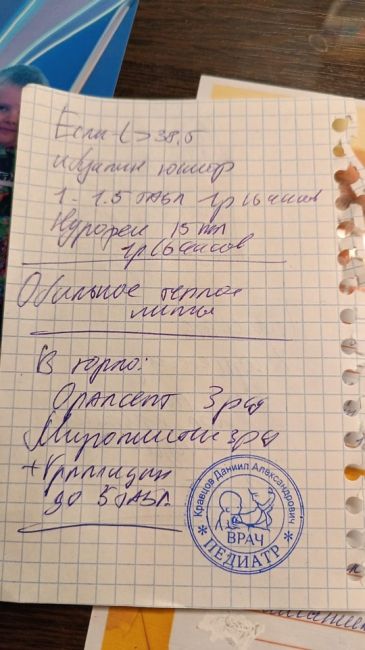 Если t > 38,5
Ибуклин юниор
1 - 1.5 табл 1р (6 часов
Нурофен 15 мл
1р (6 часов
Обильное теплое
питье
В горло:
Оралсепт 3 р/д
Мирамистин 3 р/д
+ Граммидин
до 5 табл.
Кравцов Даниил Александрович
ВРАЧ
* ПЕДИАТР *